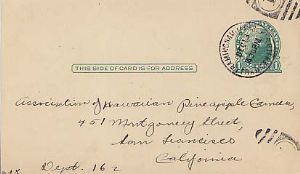 THIS SIDE OF CARD IS FOR ADDRESS
Association of Hawaiian Pineapple Canners,
451 Montgomery Street,
San Francisco
California
Dept. 162